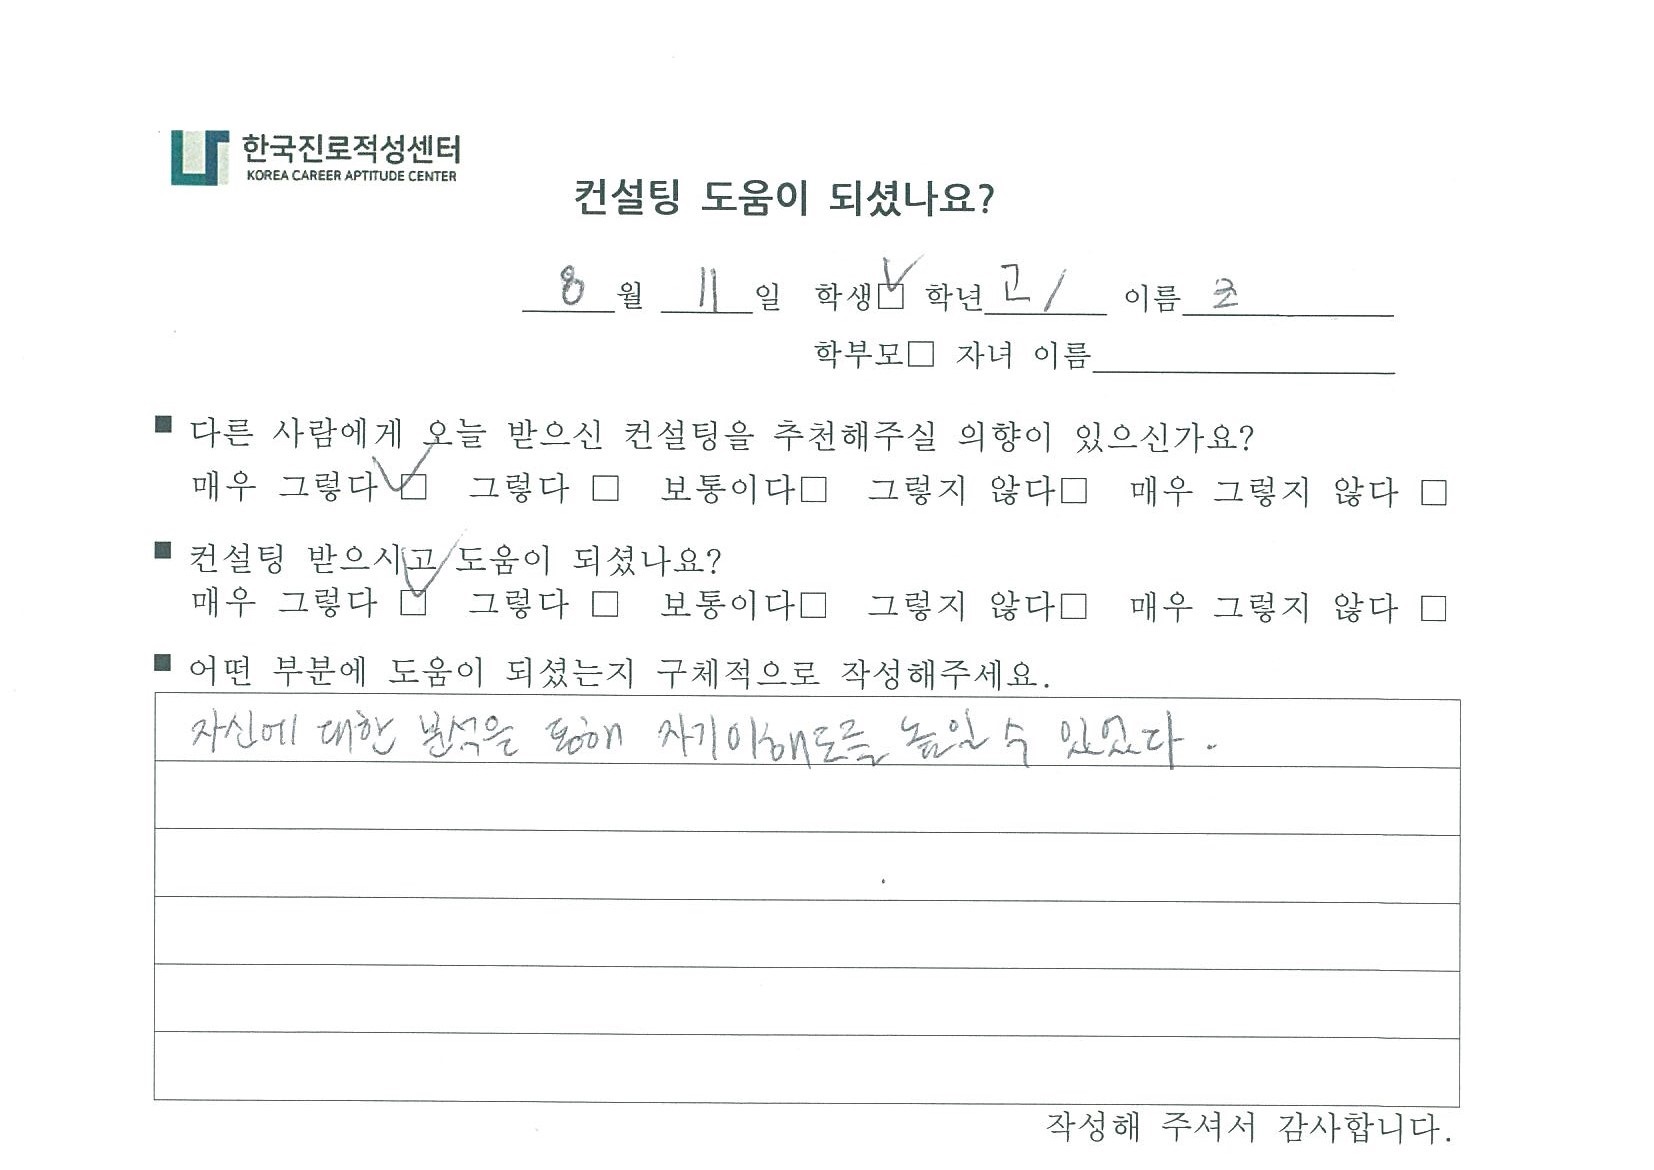 한국진로적성센터
KOREA CAREER APTITUDE CENTER
컨설팅 도움이 되셨나요?
8월 11일 학생☑ 학년 고1 이름 조
학부모□ 자녀 이름
■ 다른 사람에게 오늘 받으신 컨설팅을 추천해주실 의향이 있으신가요?
매우 그렇다 ☑ 그렇다 □ 보통이다□ 그렇지 않다□ 매우 그렇지 않다 □
■ 컨설팅 받으시고 도움이 되셨나요?
매우 그렇다 ☑ 그렇다 □ 보통이다□ 그렇지 않다□ 매우 그렇지 않다 □
■ 어떤 부분에 도움이 되셨는지 구체적으로 작성해주세요.
자신에 대한 분석을 통해 자기이해도를 높일 수 있었다.
작성해 주셔서 감사합니다.